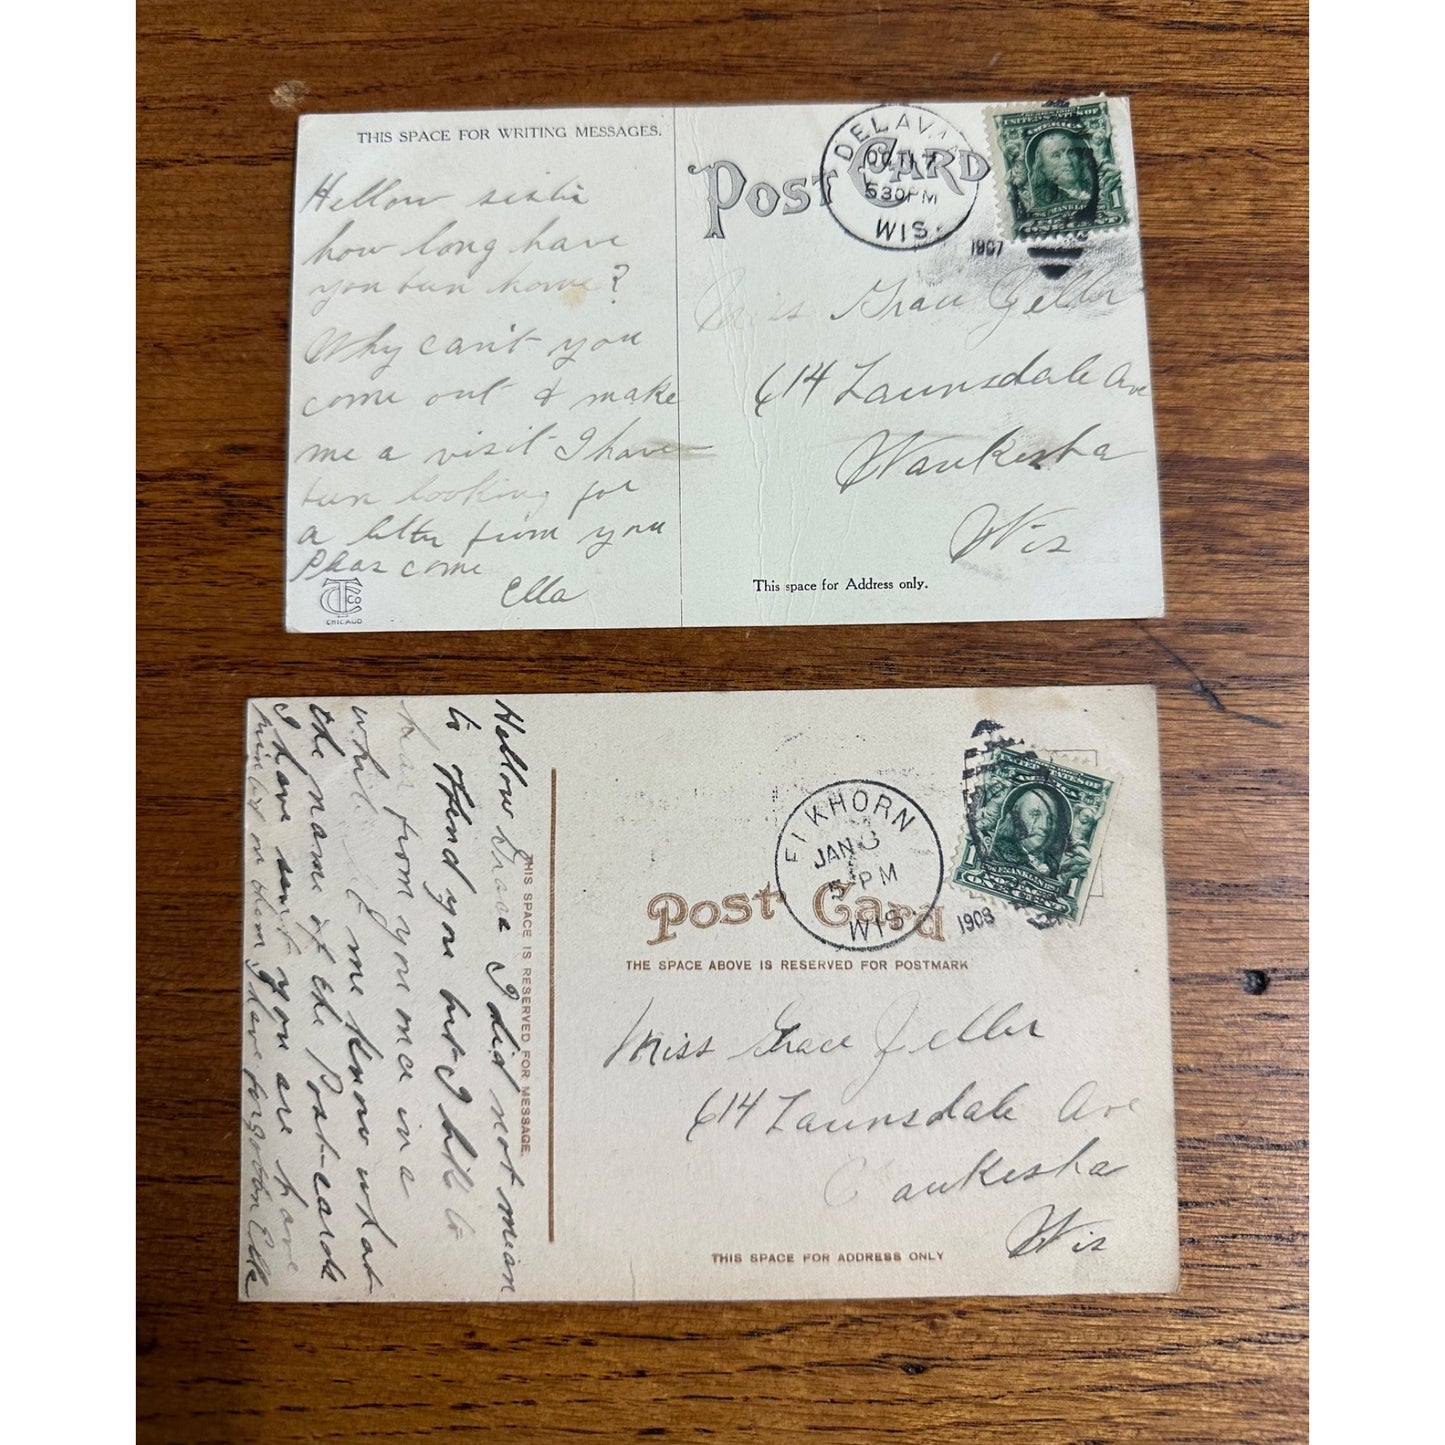 THIS SPACE FOR WRITING MESSAGES.
Hellow sister
how long have
you bun home?
Why can't you
come out & make
me a visit I have
bun looking for
a letter from you
Pleas come
Ella
TCCO
CHICAGO
POST CARD
DELAVAN
OCT 17
530PM
WIS.
1907
UNITED STATES OF
AMERICA
1 1
ONE CENT
Miss Grace Zeller
614 Launsdale Ave
Waukesha
Wis
This space for Address only.
Hellow Grace I did not mean
to offend you but I hate to
hear from you once in a
while let me know what
the name of the Post-cards
I have sent you are have
on them I have forgotten Ella
THIS SPACE IS RESERVED FOR MESSAGE.
ELKHORN
JAN 3
5 PM
WIS
1908
UNITED STATES OF
AMERICA
FRANKLIN
POSTAGE
1 1
ONE CENT
Post Card
THE SPACE ABOVE IS RESERVED FOR POSTMARK
Miss Grace Zeller
614 Launsdale Ave
Waukesha
Wis
THIS SPACE FOR ADDRESS ONLY